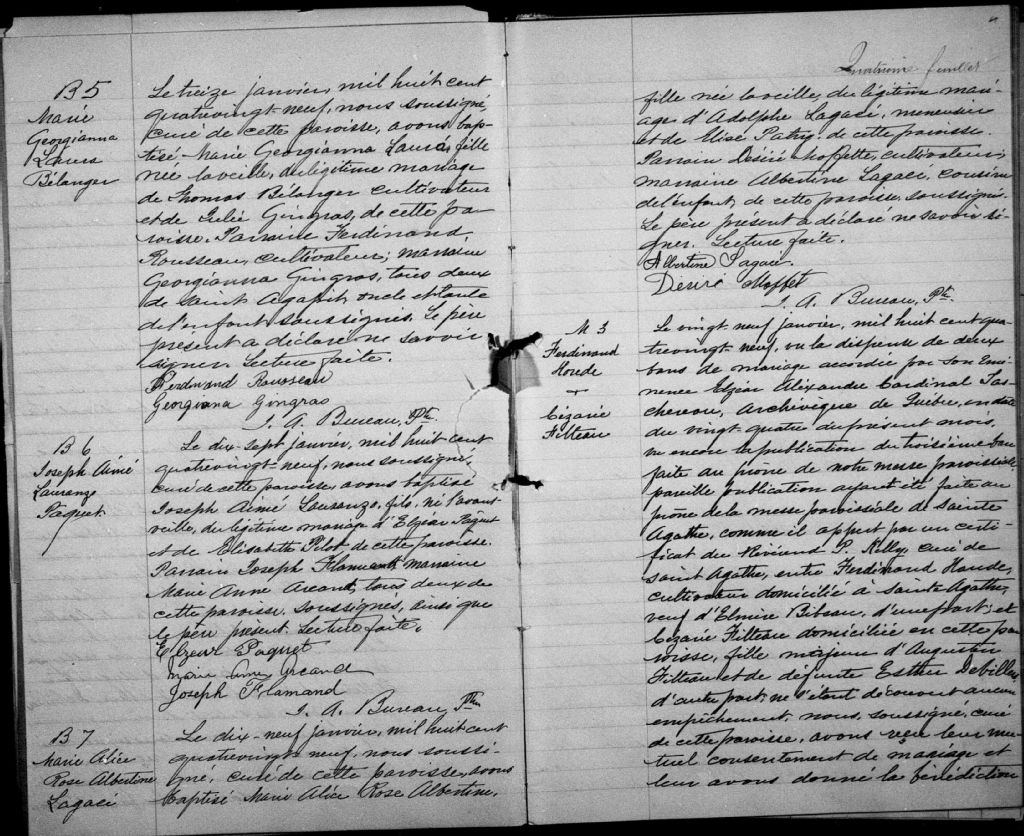 B 5
Marie
Georgianna
Laura
Bélanger
Le treize janvier, mil huit cent
quatrevingt neuf, nous soussigné,
curé de cette paroisse, avons bap-
tisé Marie Georgianna Laura, fille
née la veille, du légitime mariage
de Thomas Bélanger cultivateur
et de Julie Gingras, de cette pa
roisse. Parrain Ferdinand
Rousseau, cultivateur; marraine
Georgianna Gingras, tous deux
de Saint Agapit, oncle et tante
de l'enfant soussignés. Le père
présent a déclaré ne savoir
signer. Lecture faite.
Ferdinand Rousseau
Georgiana Gingras
J. A. Bureau, Ptre
B 6
Joseph Aimé
Laurenzo
Paquet.
Le dix sept janvier, mil huit cent
quatrevingt-neuf, nous soussigné,
curé de cette paroisse avons baptisé
Joseph Aimé Lauranzo, fils, né l'avant
veille, du légitime mariage d'Elzéar Pâquet
et de Elisabeth Pilot de cette paroisse.
Parrain Joseph Flamand marraine
Marie Anne Arcand, tous deux de
cette paroisse, soussignés, ainsi que
le père présent. Lecture faite.
Elzear Paquet
Marie Anne Arcand
Joseph Flamand
J. A. Bureau, Ptre
B 7
Marie Alice
Rose Albertine
Lagacé
Le dix-neuf janvier, mil huit cent
quatrevingt neuf, nous soussi-
gné, curé de cette paroisse, avons
baptisé Marie Alice Rose Albertine,
Quatrième feuillet
fille née la veille, du légitime mari-
age d'Adolphe Lagacé, menuisier
et de Elise Patry, de cette paroisse.
Parrain Désiré Moffette, cultivateur,
marraine Albertine Lagacé, cousine
de l'enfant, de cette paroisse, soussignés.
Le père présent a déclaré ne savoir si-
gner. Lecture faite.
Albertine Lagacé.
Desiré Moffet
J. A. Bureau, Ptre
M 3
Ferdinand
Houde
+
Cézarie
Filteau
Le vingt neuf janvier, mil huit cent qua-
trevingt neuf, vu la dispense de deux
bans de mariage accordée par Son Emi-
nence Elzéar Alexandre Cardinal Tas-
chereau, Archevêque de Québec, en date
du vingt quatre du présent mois,
vu encore la publication du troisième ban
faite au prône de notre messe paroissiale
pareille publication ayant été faite au
prône de la messe paroissiale de Sainte
Agathe, comme il appert par un certi-
ficat du Révérend P. Kelly, curé de
Saint Agathe, entre Ferdinand Houde,
cultivateur domicilié à Sainte Agathe,
veuf d'Elmire Bibeau, d'une part; et
Cézarie Filteau domiciliée en cette pa
roisse, fille majeure d'Augustin
Filteau et de défunte Esther
d'autre part; ne s'étant découvert aucun
empêchement, nous, soussigné, curé
de cette paroisse, avons reçu leur mu-
tuel consentement de mariage et
leur avons donné la bénédiction